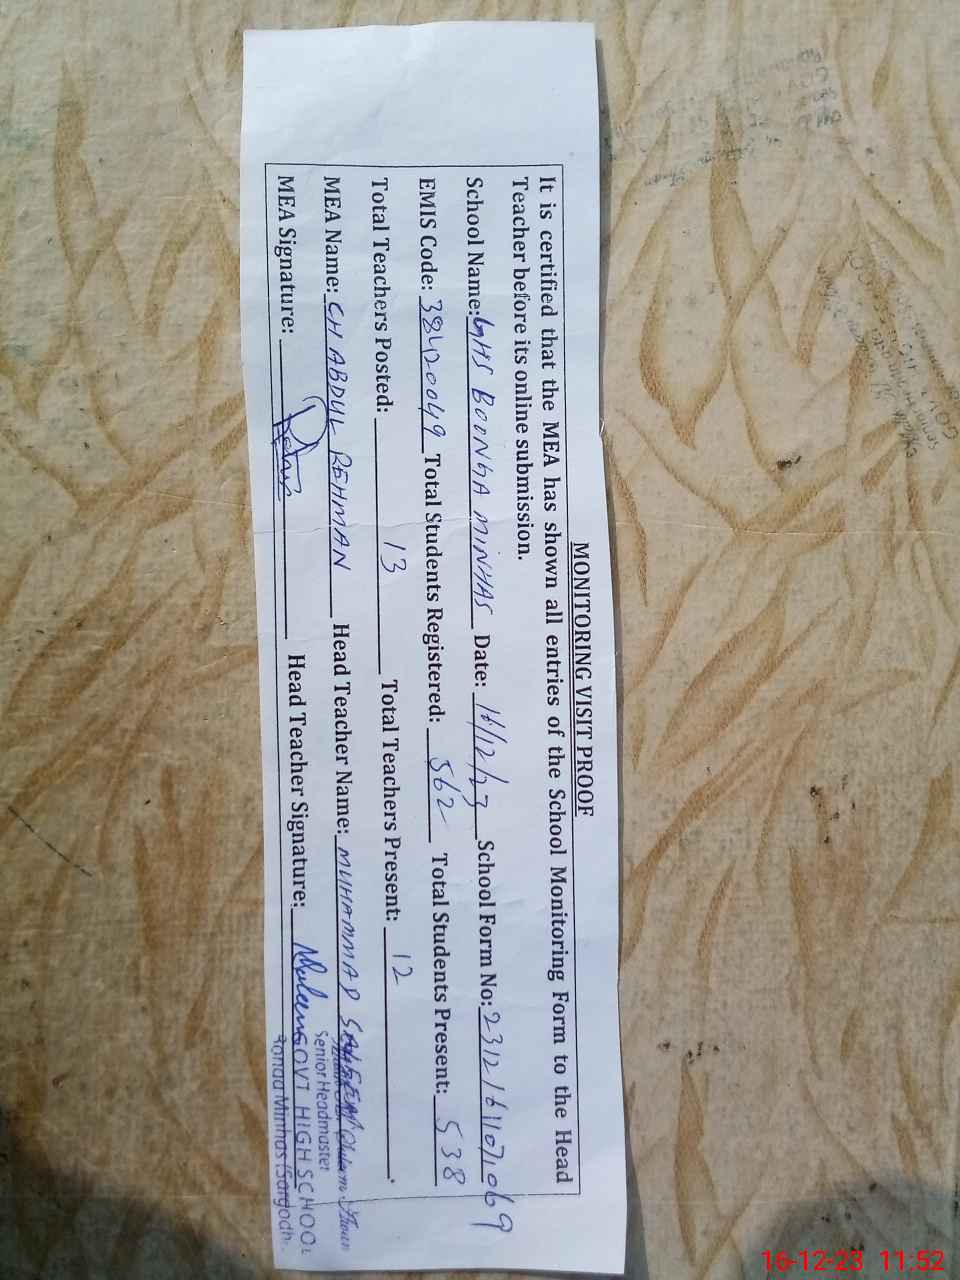 MONITORING VISIT PROOF
It is certified that the MEA has shown all entries of the School Monitoring Form to the Head
Teacher before its online submission.
School Name: GHS BOONGA MINHAS Date: 16/12/23 School Form No: 23121611071069
EMIS Code: 38420049 Total Students Registered: 562 Total Students Present: 538
Total Teachers Posted: 13 Total Teachers Present: 12
MEA Name: CH ABDUL REHMAN Head Teacher Name: MUHAMMAD SALEEM
MEA Signature: Head Teacher Signature:
Senior Headmaster
GOVT HIGH SCHOOL
Minhas (Sargodh
16-12-23 11:52